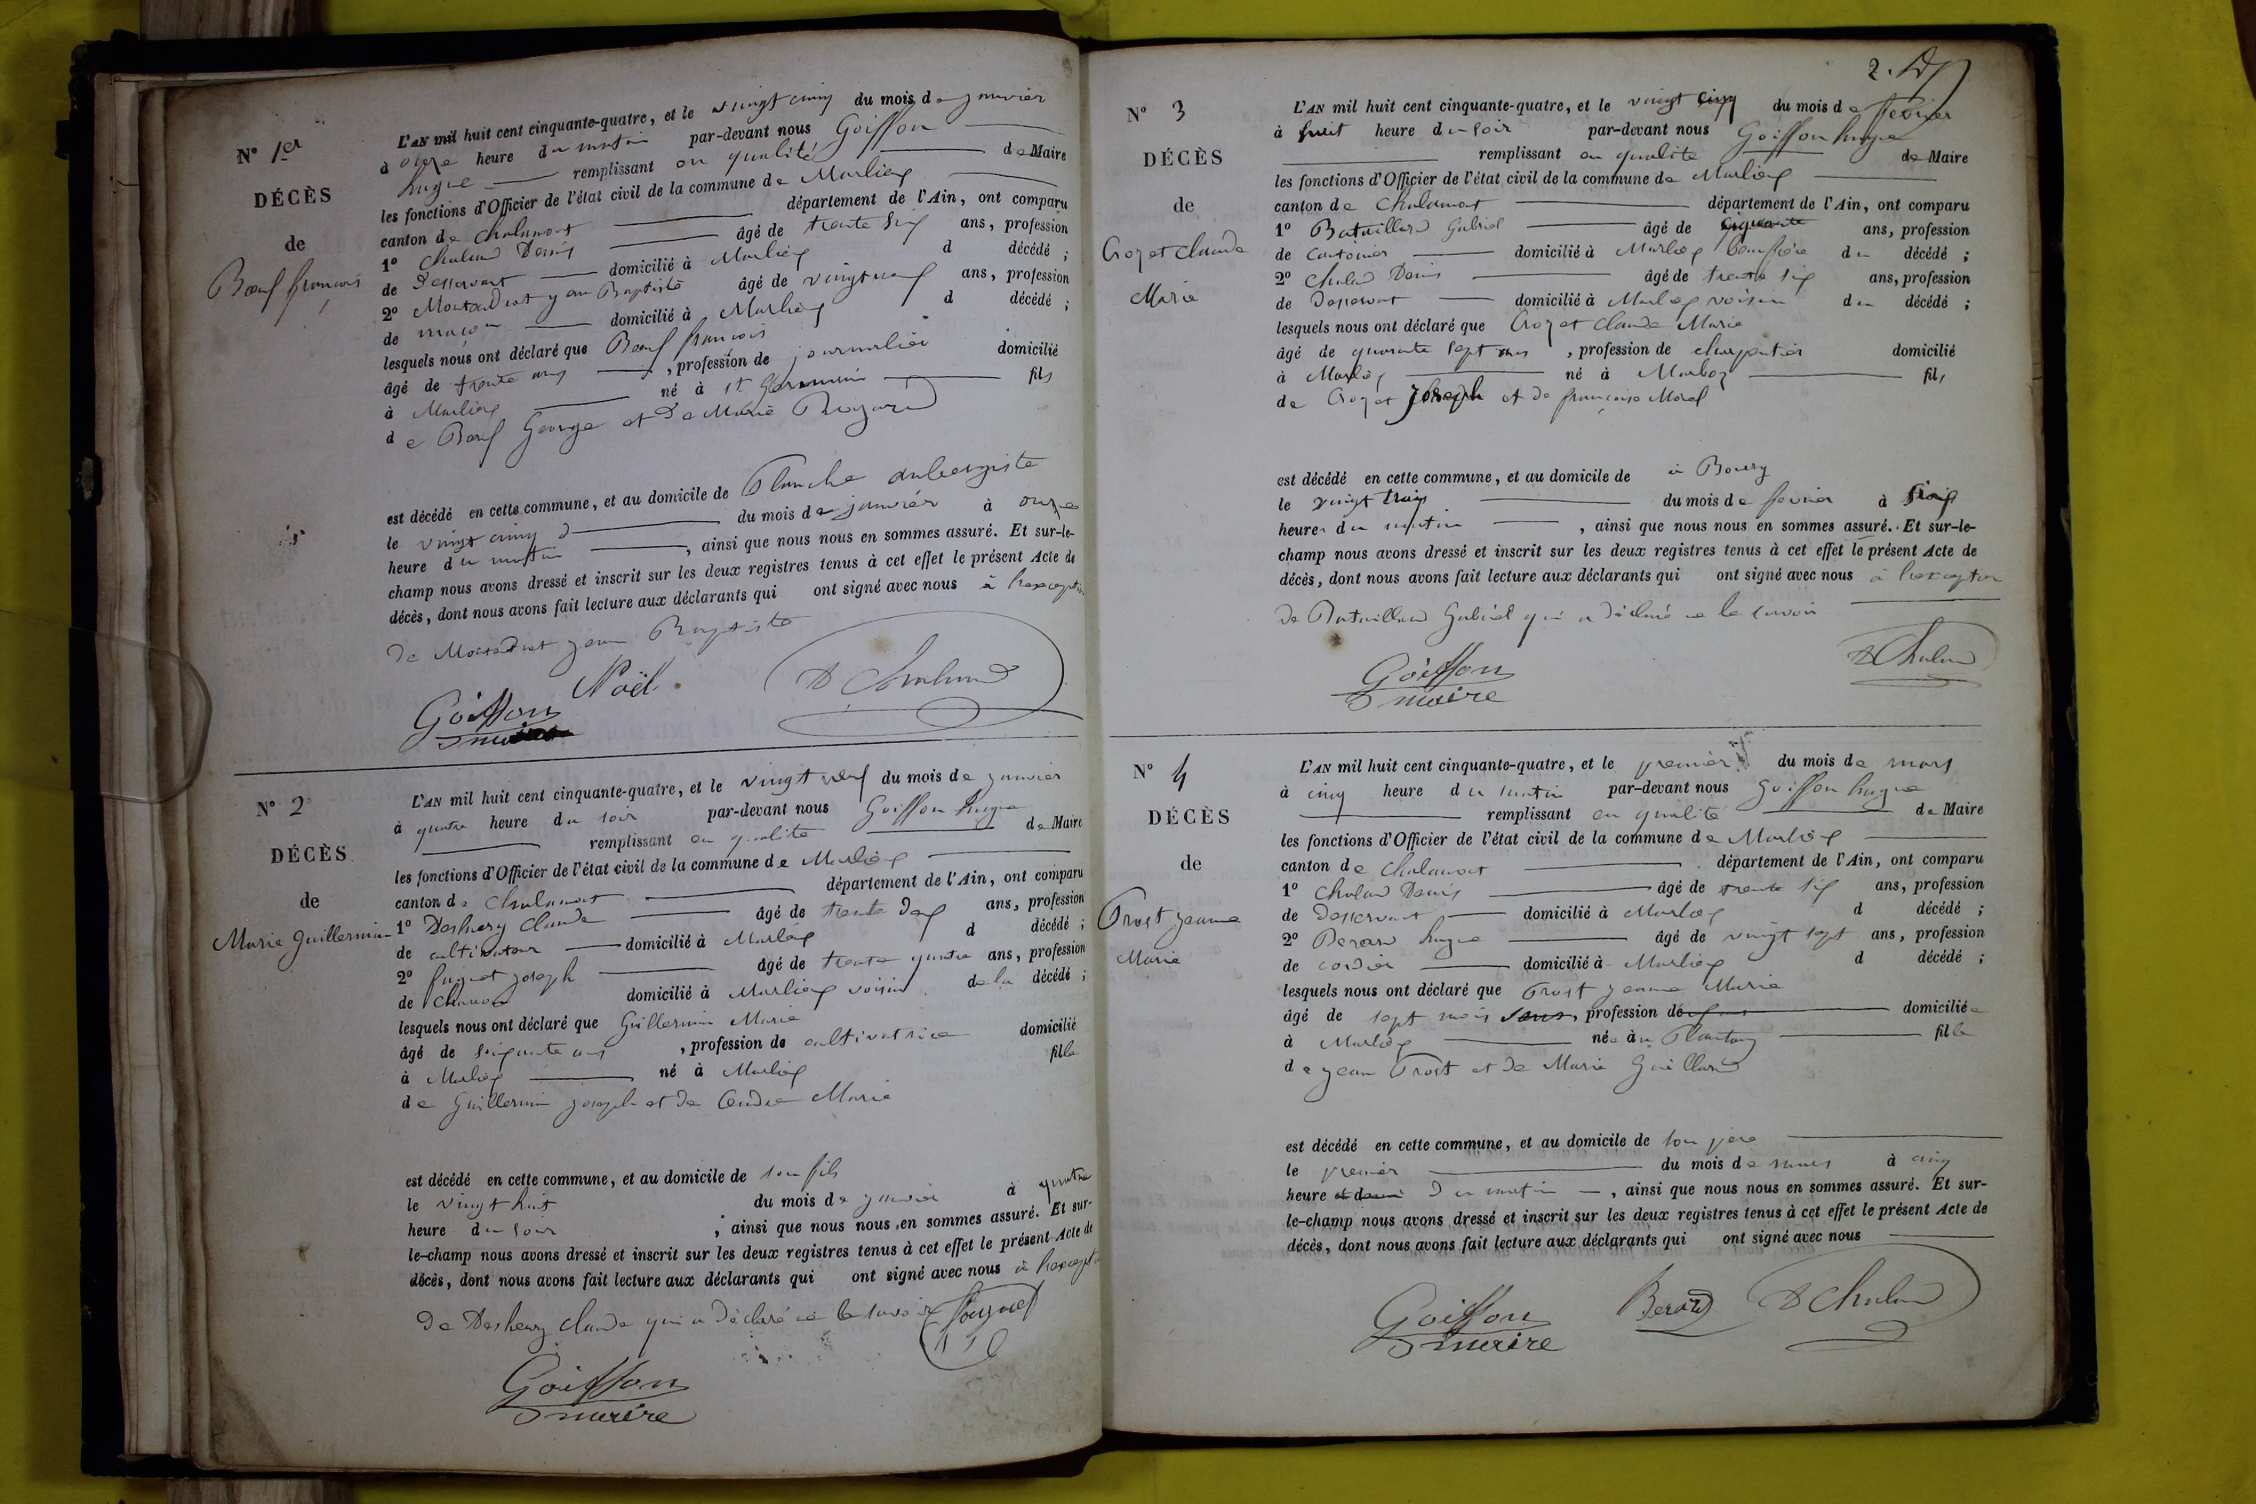 N° 1er
DÉCÈS
de
Bœuf françois
L'AN mil huit cent cinquante-quatre, et le vingt cinq du mois de janvier
à onze heure du matin par-devant nous Goiffon
hugue remplissant en qualité de Maire
les fonctions d'Officier de l'état civil de la commune de Marlieux
canton de Chalamont département de l'Ain, ont comparu
1° Chaland Denis âgé de trente six ans, profession
de Desservant domicilié à Marlieux d décédé ;
2° jean Baptiste âgé de vingt neuf ans, profession
de maçon domicilié à Marlieux d décédé ;
lesquels nous ont déclaré que Bœuf françois
âgé de trente ans, profession de journalier domicilié
à Marlieux né à St Germain fils
de Bœuf George et de Marie
est décédé en cette commune, et au domicile de Planche aubergiste
le vingt cinq du mois de janvier à onze
heure du matin, ainsi que nous nous en sommes assuré. Et sur-le-
champ nous avons dressé et inscrit sur les deux registres tenus à cet effet le présent Acte de
décès, dont nous avons fait lecture aux déclarants qui ont signé avec nous à l'exception
de jean Baptiste
Goiffon Noël D Chaland
N° 2
DÉCÈS
de
Marie Guillermin
L'AN mil huit cent cinquante-quatre, et le vingt neuf du mois de janvier
à quatre heure du soir par-devant nous Goiffon hugue
remplissant en qualité de Maire
les fonctions d'Officier de l'état civil de la commune de Marlieux
canton de Chalamont département de l'Ain, ont comparu
1° Deshenry Claude âgé de trente deux ans, profession
de cultivateur domicilié à Marlieux d décédé ;
2° joseph âgé de trente quatre ans, profession
de domicilié à Marlieux voisin de la décédé ;
lesquels nous ont déclaré que Guillermin Marie
âgé de soixante ans, profession de cultivatrice domicilié
à Marlieux né à Marlieux fille
de Guillermin joseph et de Marie
est décédé en cette commune, et au domicile de son fils
le vingt huit du mois de janvier à quatre
heure du soir, ainsi que nous nous en sommes assuré. Et sur-
le-champ nous avons dressé et inscrit sur les deux registres tenus à cet effet le présent Acte de
décès, dont nous avons fait lecture aux déclarants qui ont signé avec nous à l'exception
de Deshenry claude qui a déclaré ne le savoir
Goiffon
maire
2.
N° 3
DÉCÈS
de
Crozet Claude
Marie
L'AN mil huit cent cinquante-quatre, et le vingt cinq du mois de février
à huit heure du soir par-devant nous Goiffon hugue
remplissant en qualité de Maire
les fonctions d'Officier de l'état civil de la commune de Marlieux
canton de Chalamont département de l'Ain, ont comparu
1° Bataillard Gabriel âgé de ans, profession
de Cantonier domicilié à Marlieux du décédé ;
2° Chaland Denis âgé de trente six ans, profession
de Desservant domicilié à Marlieux voisin du décédé ;
lesquels nous ont déclaré que Crozet Claude Marie
âgé de quarante sept ans, profession de charpentier domicilié
à Marlieux né à Marboz fils
de Crozet Joseph et de françoise Morel
est décédé en cette commune, et au domicile de à
le vingt trois du mois de fevrier à cinq
heures du matin, ainsi que nous nous en sommes assuré. Et sur-le-
champ nous avons dressé et inscrit sur les deux registres tenus à cet effet le présent Acte de
décès, dont nous avons fait lecture aux déclarants qui ont signé avec nous à l'exception
de Bataillard Gabriel qui a déclaré ne le savoir
Goiffon D Chaland
maire
N° 4
DÉCÈS
de
Prost jeanne
Marie
L'AN mil huit cent cinquante-quatre, et le premier du mois de mars
à cinq heure du matin par-devant nous Goiffon hugue
remplissant en qualité de Maire
les fonctions d'Officier de l'état civil de la commune de Marlieux
canton de Chalamont département de l'Ain, ont comparu
1° Chaland Denis âgé de trente six ans, profession
de Desservant domicilié à Marlieux d décédé ;
2° Berard hugue âgé de vingt sept ans, profession
de cordier domicilié à Marlieux d décédé ;
lesquels nous ont déclaré que Prost jeanne Marie
âgé de sept mois sans, profession de domiciliée
à Marlieux née à fille
de jean Prost et de Marie Guillard
est décédé en cette commune, et au domicile de son père
le premier du mois de mars à cinq
heure du matin, ainsi que nous nous en sommes assuré. Et sur-
le-champ nous avons dressé et inscrit sur les deux registres tenus à cet effet le présent Acte de
décès, dont nous avons fait lecture aux déclarants qui ont signé avec nous
Goiffon Berard D Chaland
maire